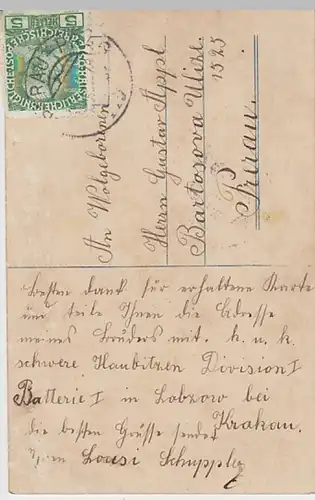 5 5
PRERAU
An Wolgeboremen
Herrn Gustav Appl
Bartosova Ulize.
1525
Prerau.
Besten dank für erhaltene Karte
und teile Ihnen die Adresse
meines Bruders mit. k. u. k.
schwere Haubitzen Division I
Batterie I in Lobzow bei
Krakau.
die besten Grüsse sendet
Ihnen Lousi Schuppler